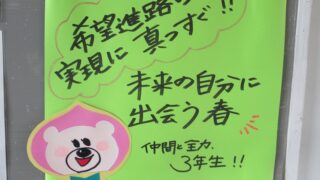 希望進路の
実現に真っすぐ!!
未来の自分に
出会う春
仲間と全力、
3年生!!